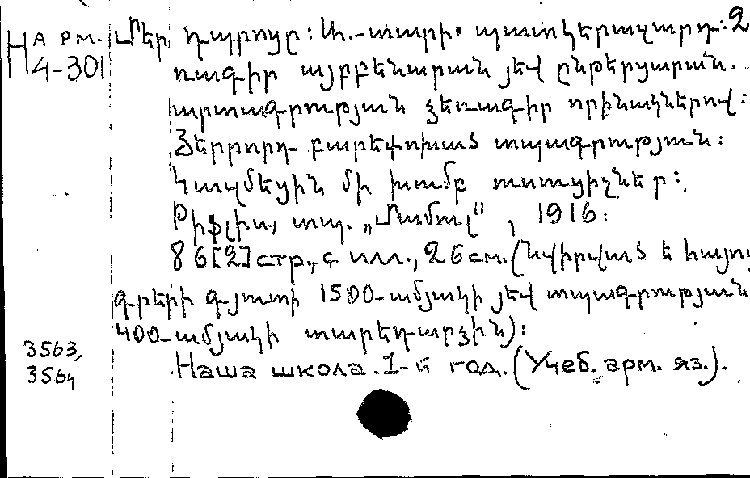 На рм.
4-301
Մեր դպրոցը: Ա.-տարի. պատկերազարդ: 2
ռագիր այբբենարան յեվ ընթերցարան.
արտագրության ձեռագիր որինակներով:
Յերրորդ բարեփոխած տպագրություն:
Կազմեցին մի խումբ ուսուցիչներ:
Թիֆլիս, տպ. „Մամուլ", 1916:
86[2] стр., с илл., 26 см. (Նվիրված է հայոց
գրերի գյուտի 1500-ամյակի յեվ տպագրության
400-ամյակի տարեդարձին):
3563,
3564
Наша школа. 1-й год. (Учеб. арм. яз.).